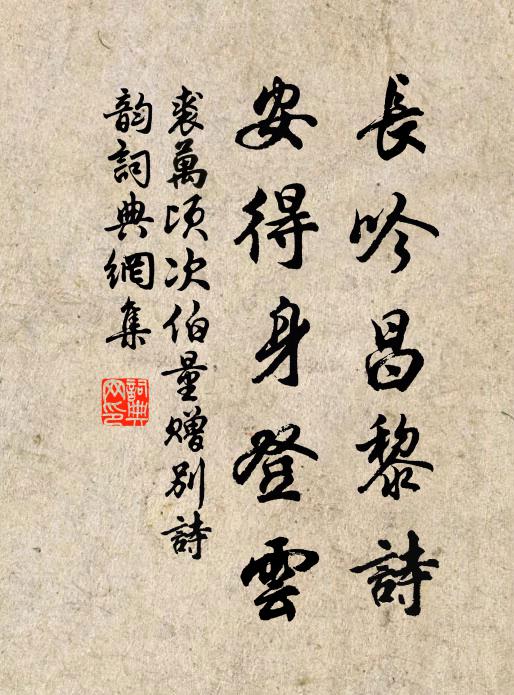 長吟昌黎詩
安得身登雲
裘萬頃次伯量贈別詩
韵詞典網集
詞典網印